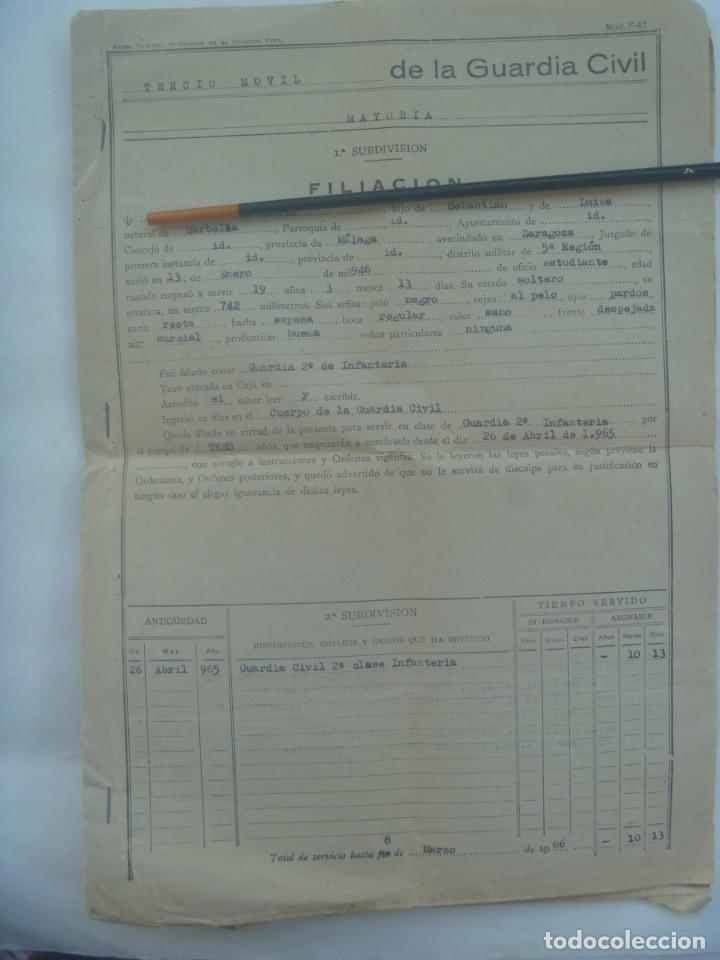 Mod. F-42
TERCIO MOVIL de la Guardia Civil
MAYORIA
1.ª SUBDIVISION
FILIACION
hijo de Sebastian y de Luisa
natural de Marbella, Parroquia de id. Ayuntamiento de id.
Concejo de id., provincia de Málaga avecindado en Zaragoza, Juzgado de
primera instancia de id., provincia de id., distrito militar de 5ª Región
nació en 13 de enero de mil 946 de oficio estudiante, edad
cuando empezó a servir 19 años 3 meses 13 días. Su estado soltero, su
estatura, un metro 742 milímetros. Sus señas: pelo negro, cejas al pelo ojos pardos
nariz recta, barba espesa, boca regular, color sano frente despejada
marcial, producción buena señas particulares ninguna
Fué filiado como Guardia 2º de Infanteria
Tuvo entrada en Caja en
Acreditó si saber leer y escribir.
Ingresó en filas en el Cuerpo de la Guardia Civil
Queda filiado en virtud de la presente para servir en clase de Guardia 2º Infanteria por
el tiempo de TRES años, que empezarán a contársele desde el día 26 de Abril de 1.965
con arreglo a instrucciones y Ordenes vigentes. Se le leyeron las leyes penales, según previene la
Ordenanza, y Ordenes posteriores, y quedó advertido de que no le servirá de disculpa para su justificación en
ningún caso el alegar ignorancia de dichas leyes.
ANTIGÜEDAD 2.ª SUBDIVISION TIEMPO SERVIDO
ABONABLE
EMPLEOS Y GRADOS QUE HA OBTENIDO
Día Mes Año Años Meses Días Años Meses Días
26 Abril 965 Guardia Civil 2ª clase Infanteria - 10 13
8
Total de servicio hasta fin de Marzo de 1966 - 10 13
todocoleccion
todocoleccion.net